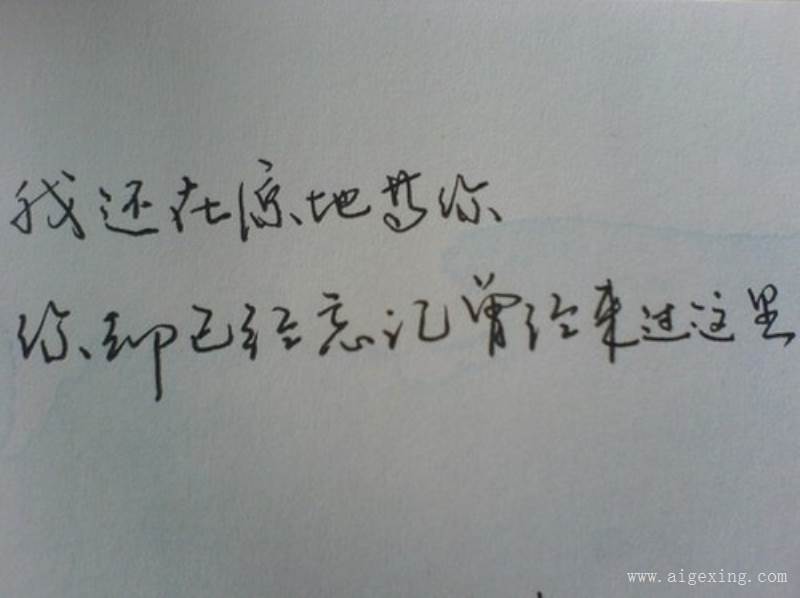 我还在原地等你
你却已经忘记曾经来过这里
www.aigexing.com